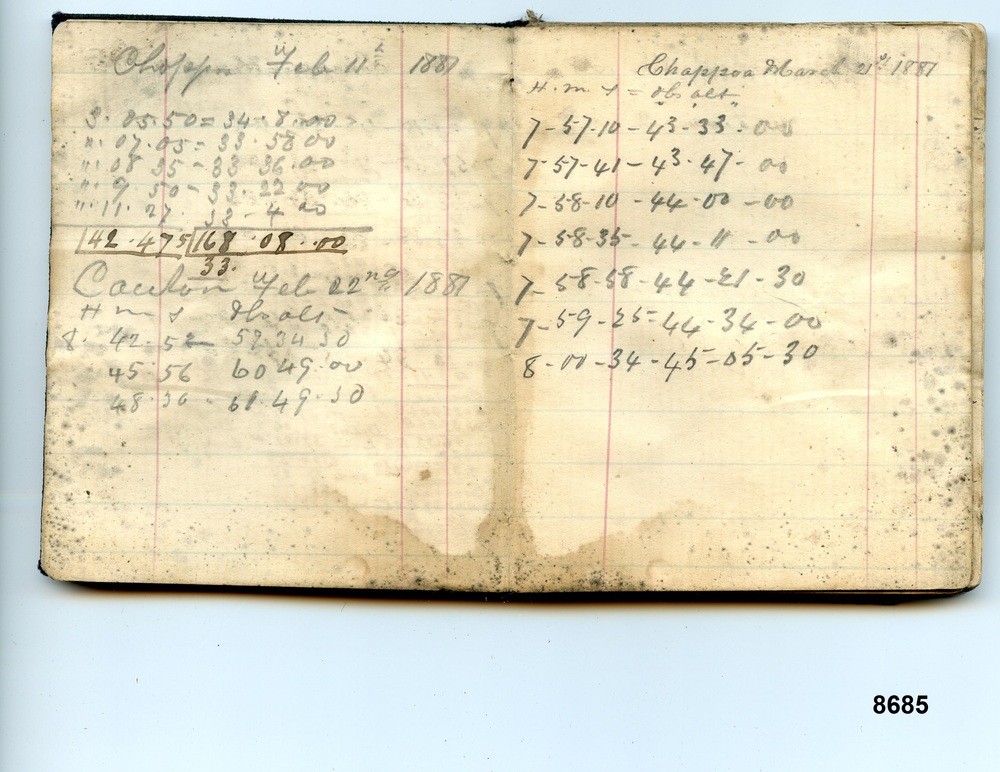 Choppa Feb 11th 1881
3. 05.50 = 34. 8.00
". 07.05 = 33.58 00
". 08 35 - 33 36.00
". 9 50 - 33. 22 00
". 11. 27. 33 - 4 00
142.475 168.08.00
33.
Feb 22nd 1881
H m s Obs alt
8. 42.52 - 59 34 30
45.56 60 49.00
48.30 - 61.49.30
Chappoa March 21st 1881
H. m s = obs alt
7-57-10-43-33-00
7-57-41-43-47-00
7-58-10-44-00-00
7-58-35-44-11-00
7-58-58-44-21-30
7-59-25-44-34-00
8-00-34-45-05-30
8685